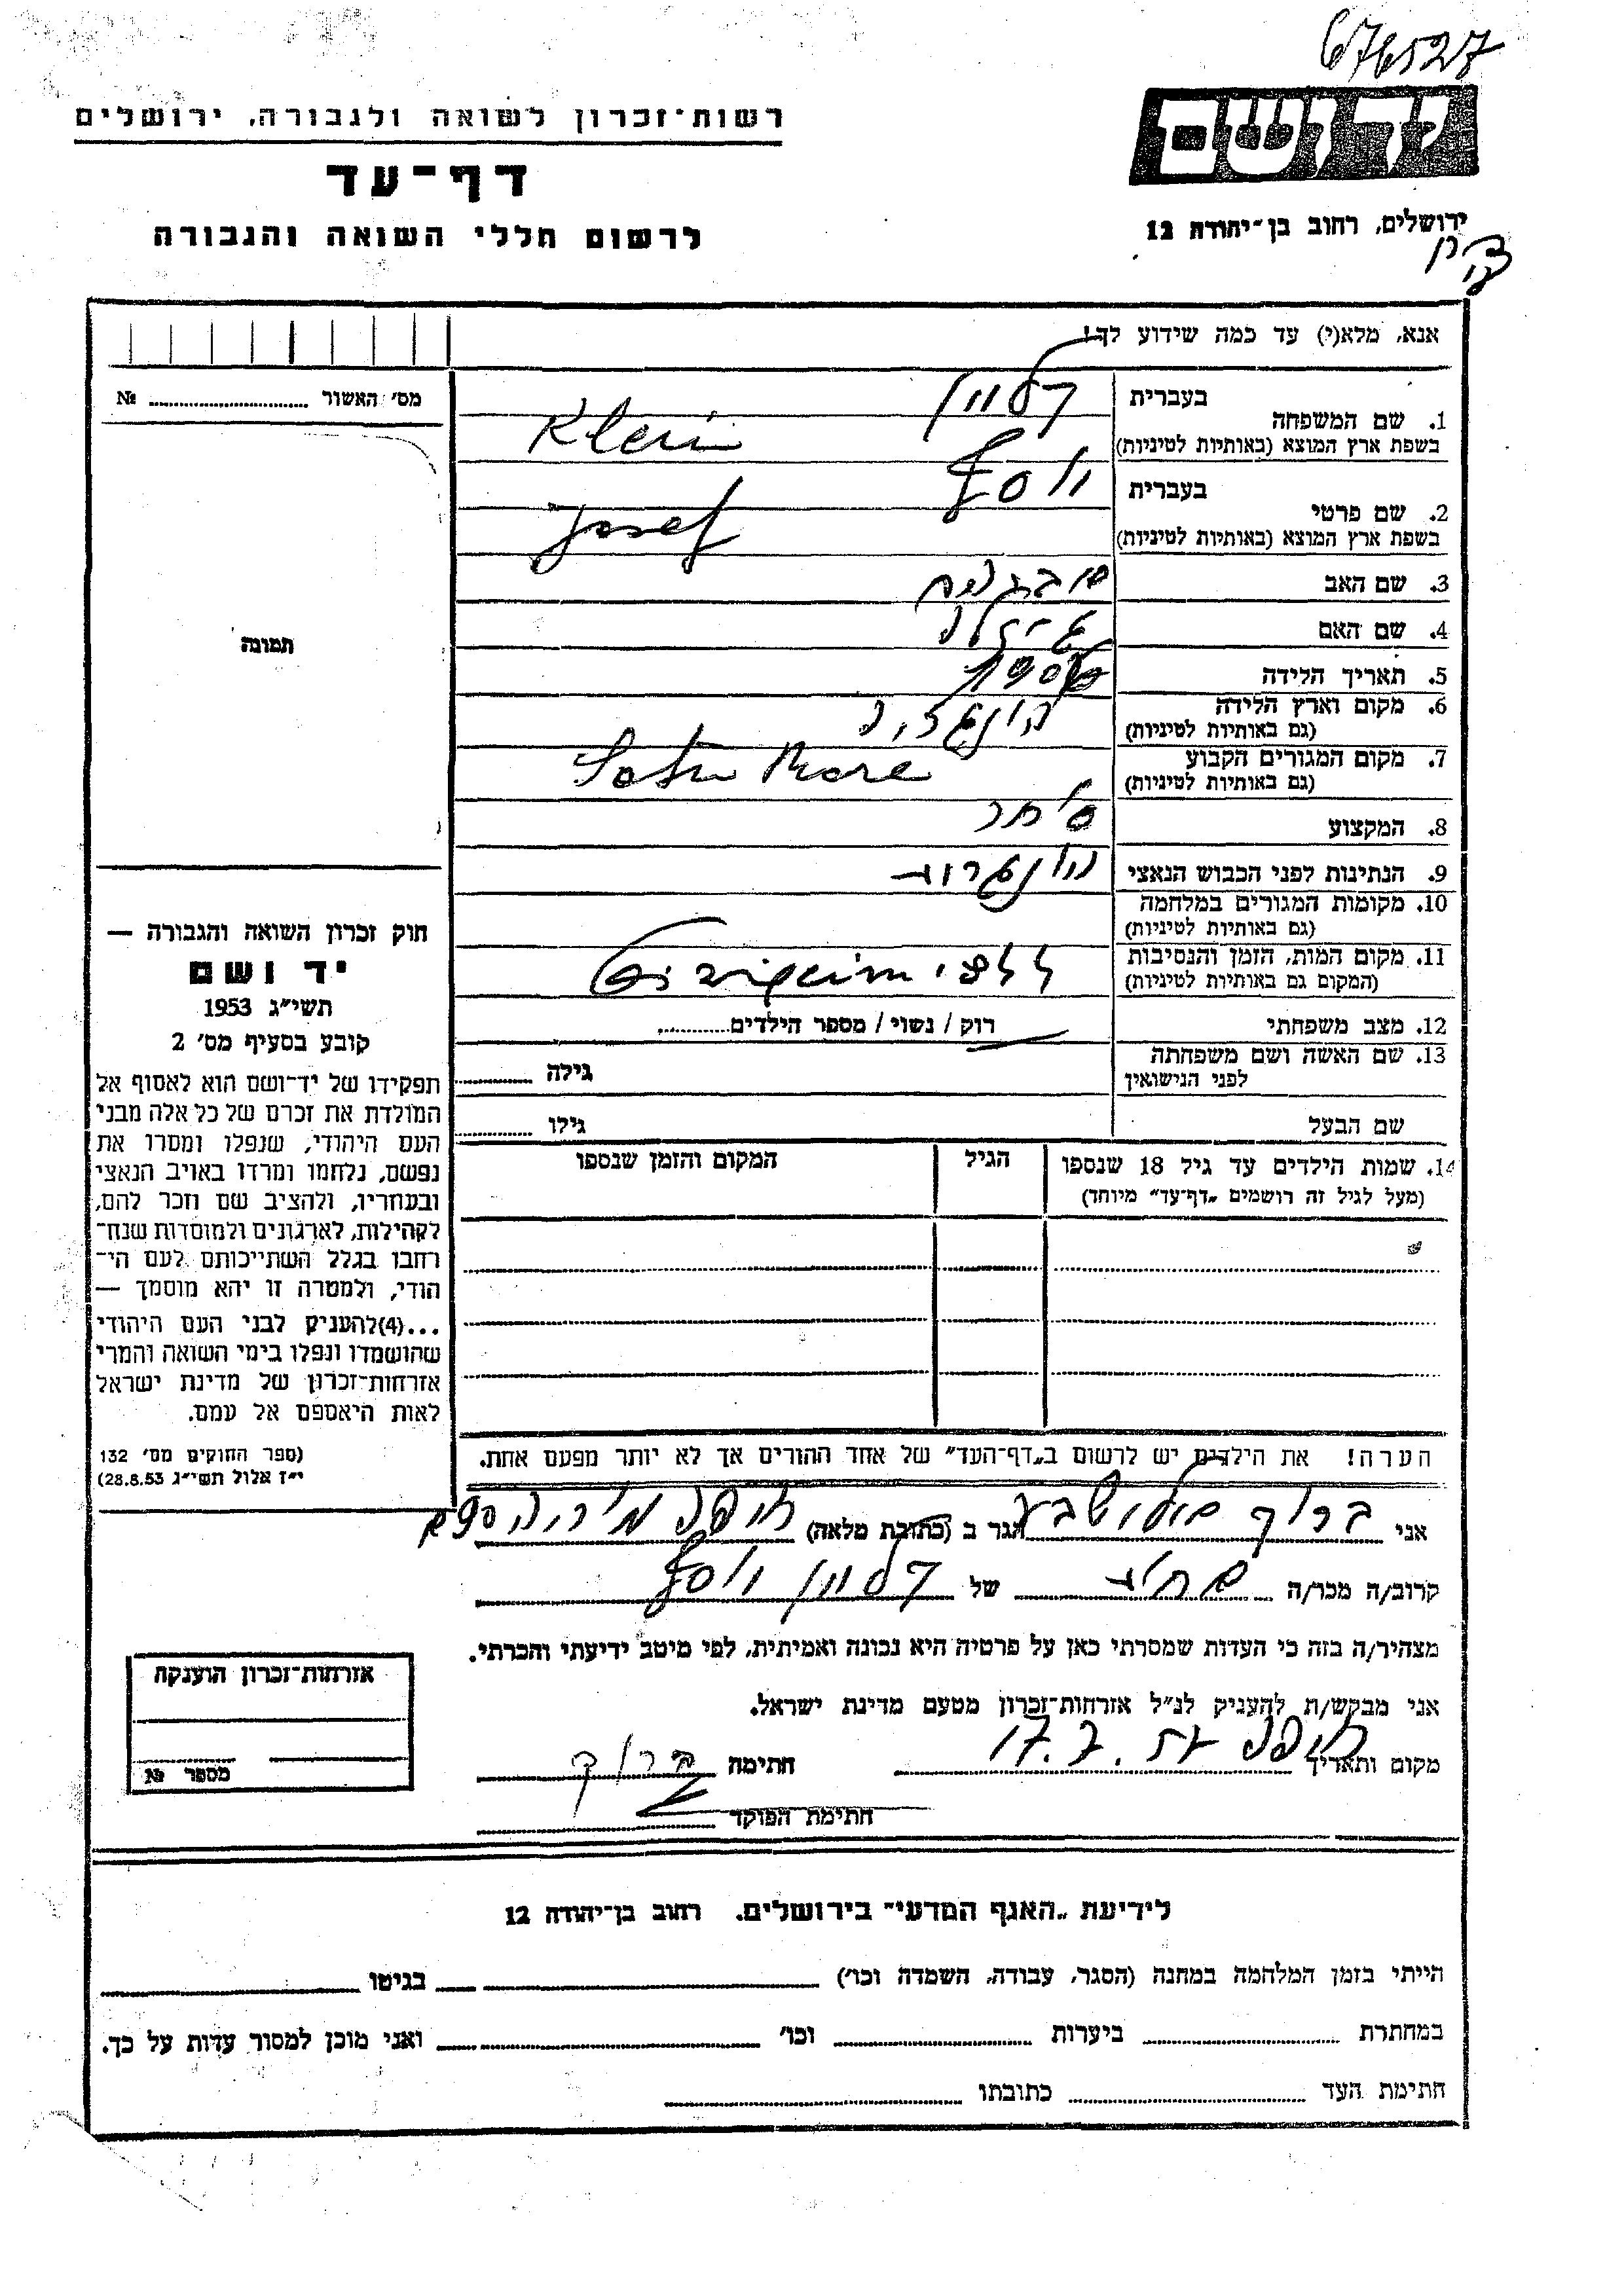 676527
רשות־זכרון לשואה ולגבורה, ירושלים
יד ושם
דף־עד
ירושלים, רחוב בן־יהודה 12
לרשום חללי השואה והגבורה
אנא, מלא(י) עד כמה שידוע לך!
מס׳ האשור № 
1. שם המשפחה בעברית קליין
בשפת ארץ המוצא (באותיות לטיניות) Klein
2. שם פרטי בעברית יוסף
בשפת ארץ המוצא (באותיות לטיניות) Josef
3. שם האב
4. שם האם
5. תאריך הלידה
6. מקום וארץ הלידה
(גם באותיות לטיניות)
7. מקום המגורים הקבוע Satu Mare
(גם באותיות לטיניות)
8. המקצוע סוחר
9. הנתינות לפני הכבוש הנאצי הונגרית
10. מקומות המגורים במלחמה
(גם באותיות לטיניות)
11. מקום המות, הזמן והנסיבות
(המקום גם באותיות לטיניות)
12. מצב משפחתי רוק / נשוי / מספר הילדים
13. שם האשה ושם משפחתה גילה
לפני הנישואין
שם הבעל גילו
14. שמות הילדים עד גיל 18 שנספו הגיל המקום והזמן שנספו
(מעל לגיל זה רושמים „דף־עד״ מיוחד)
הערה! את הילדים יש לרשום ב„דף־העד״ של אחד ההורים אך לא יותר מפעם אחת.
תמונה
חוק זכרון השואה והגבורה —
יד ושם
תשי״ג 1953
קובע בסעיף מס׳ 2
תפקידו של יד־ושם הוא לאסוף אל
המולדת את זכרם של כל אלה מבני
העם היהודי, שנפלו ומסרו את
נפשם, נלחמו ומרדו באויב הנאצי
ובעוזריו, ולהציב שם וזכר להם,
לקהילות, לארגונים ולמוסדות שנח־
רחבו בגלל השתייכותם לעם הי־
הודי, ולמטרה זו יהא מוסמך —
...(4)להעניק לבני העם היהודי
שהושמדו ונפלו בימי השואה והמרי
אזרחות־זכרון של מדינת ישראל
לאות היאספם אל עמם.
(ספר החוקים מס׳ 132
י״ז אלול תשי״ג 28.8.53)
אני ברוך הגר ב (כתובת מלאה) חיפה
קרוב/ה מכר/ה של קליין יוסף
מצהיר/ה בזה כי העדות שמסרתי כאן על פרטיה היא נכונה ואמיתית, לפי מיטב ידיעתי והכרתי.
אני מבקש/ת להעניק לנ״ל אזרחות־זכרון מטעם מדינת ישראל.
מקום ותאריך חיפה 17.7. חתימה ברוך
חתימת הפוקד
אזרחות־זכרון הוענקה
מספר №
לידיעת „האגף המדעי״ בירושלים. רחוב בן־יהודה 12
הייתי בזמן המלחמה במחנה (הסגר, עבודה, השמדה וכו׳) בגיטו
במחתרת ביערות וכו׳ ואני מוכן למסור עדות על כך.
חתימת העד כתובתו